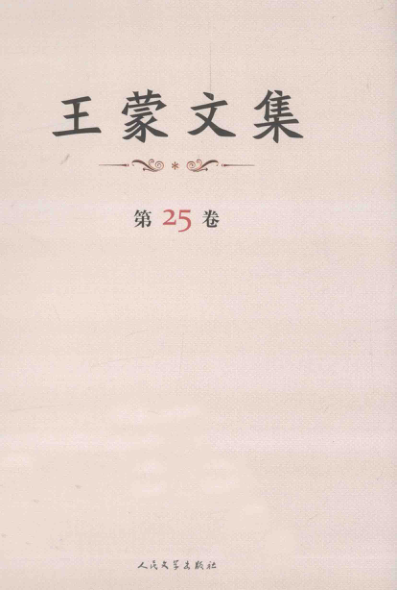 王蒙文集
第25卷
人民文学出版社